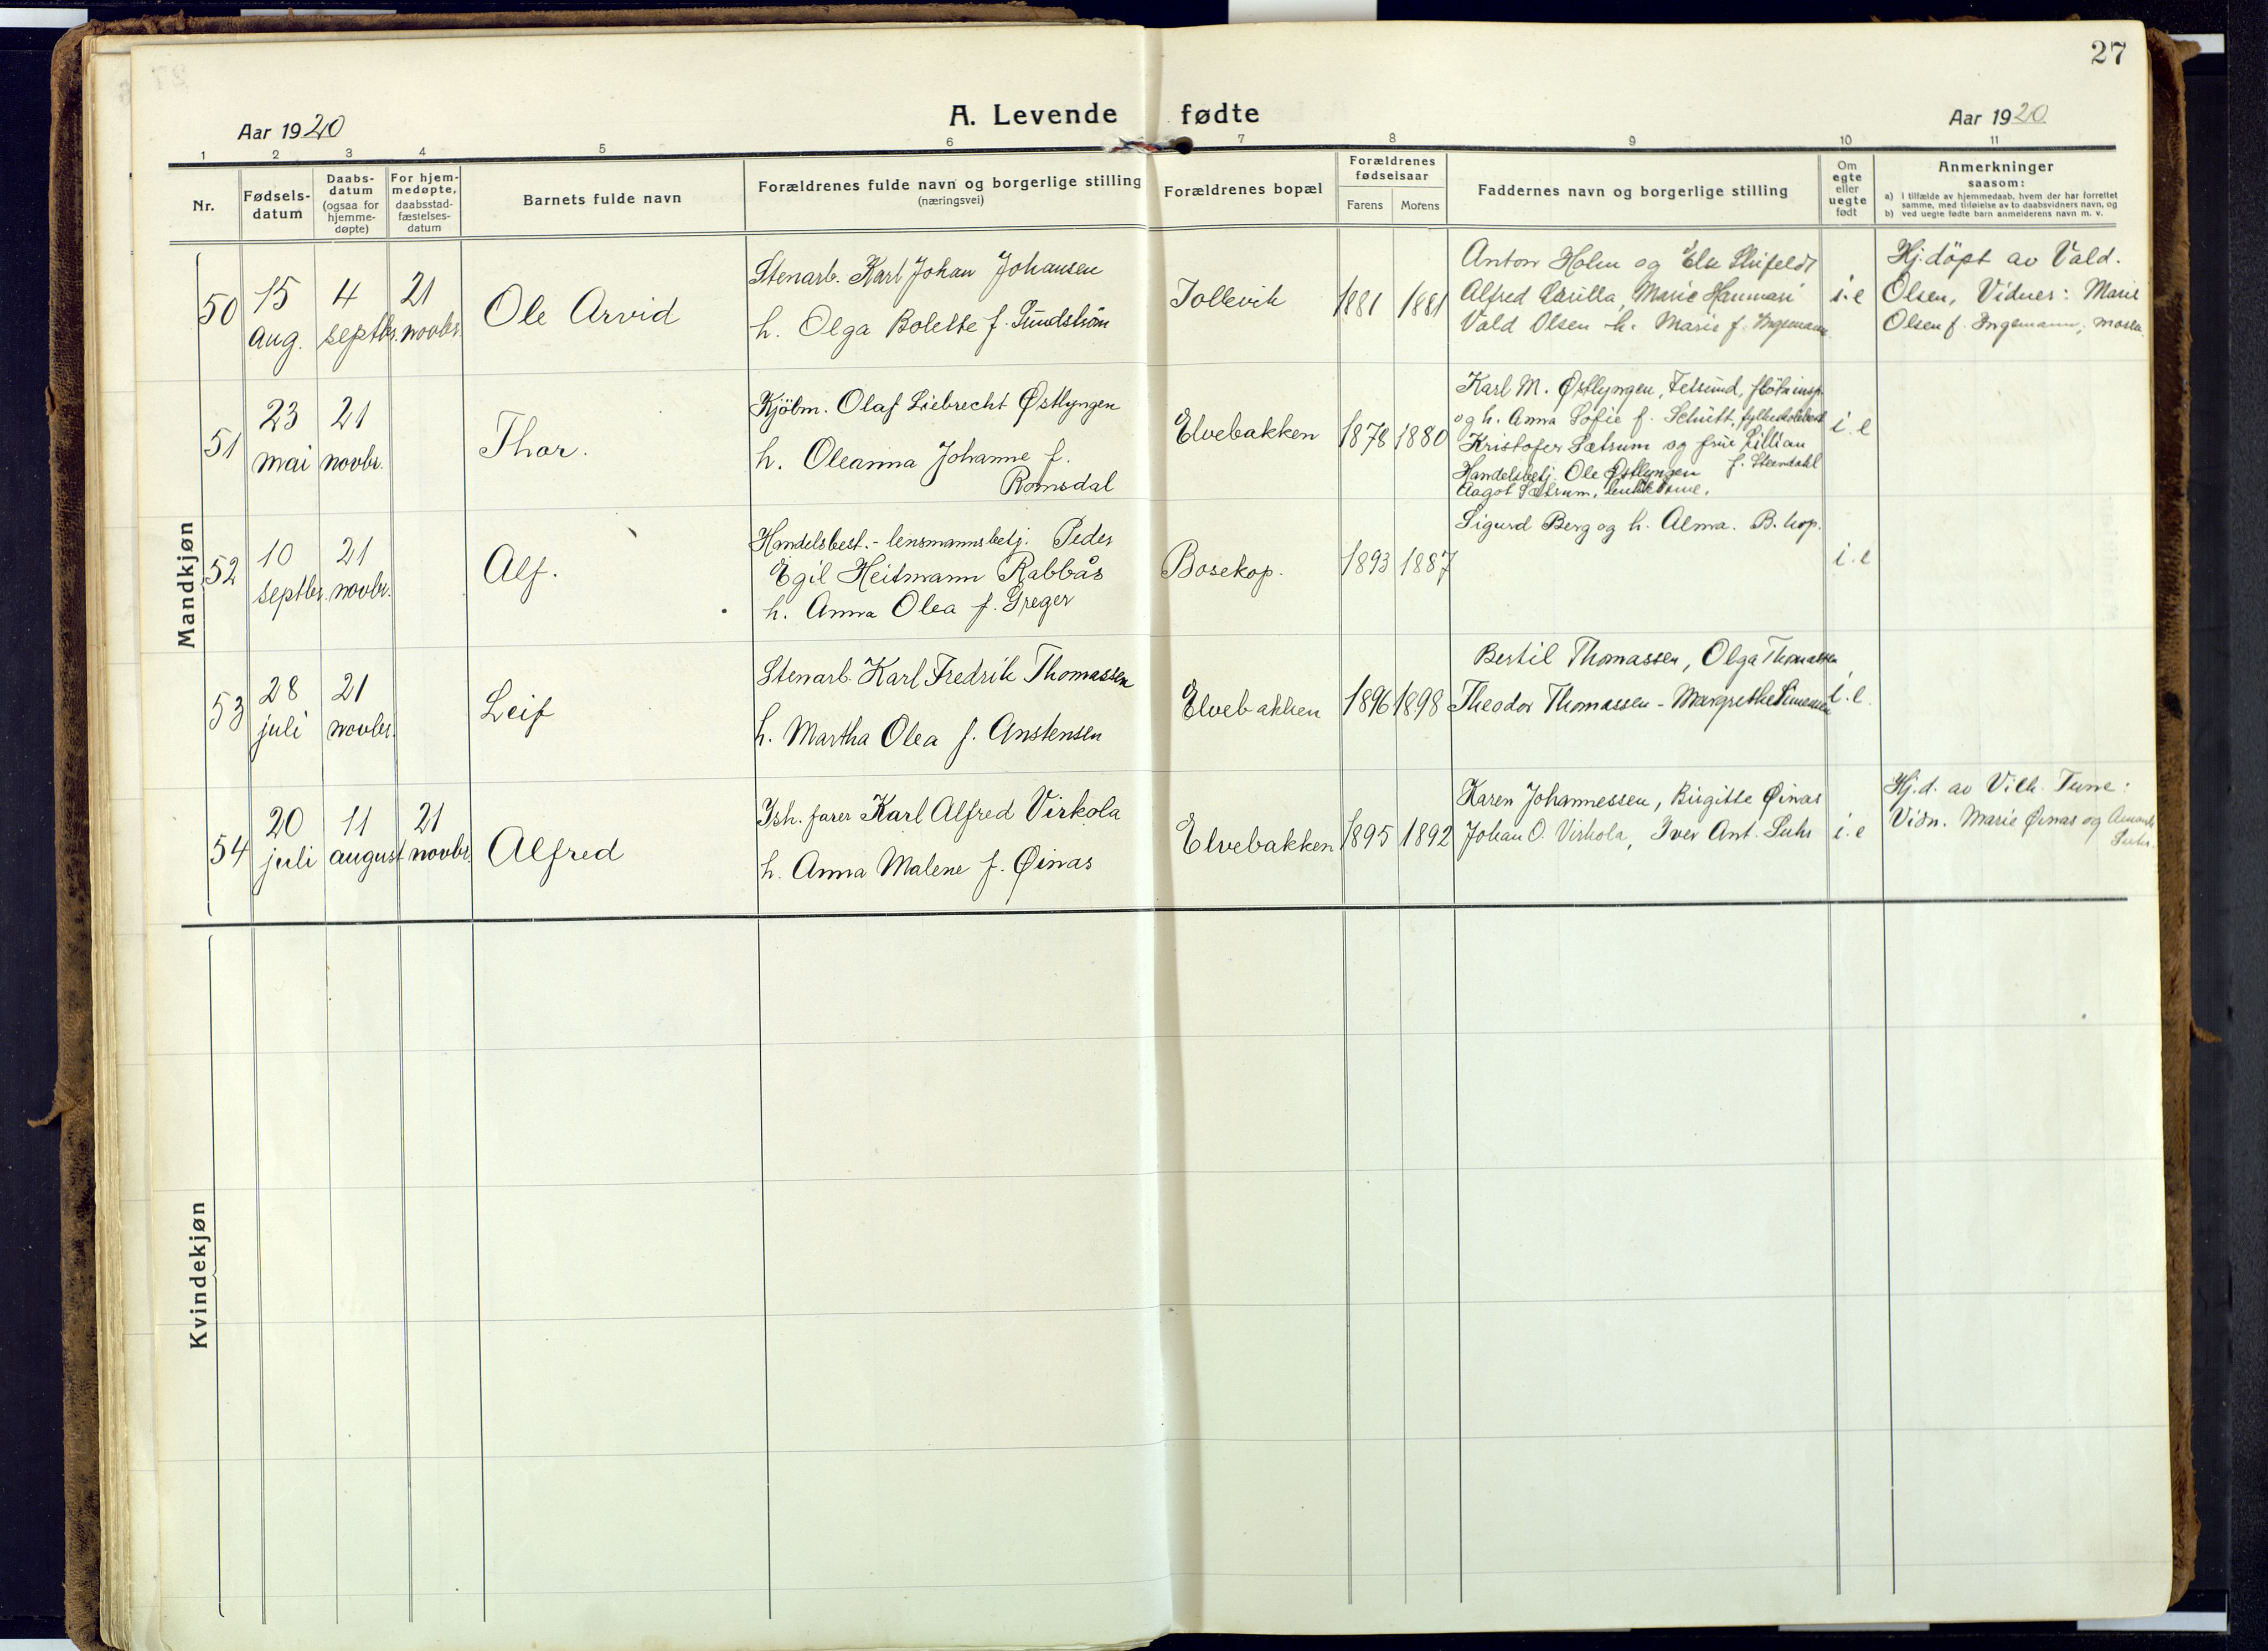 27
A. Levende fødte
Aar 1920
Aar 1920
1 2 3 4 5 6 7 8 9 10 11
Nr.
Fødsels-
datum
Daabs-
datum
(ogsaa for
hjemme-
døpte)
For hjem-
medøpte,
daabsstad-
fæstelses-
datum
Barnets fulde navn
Forældrenes fulde navn og borgerlige stilling
(næringsvei)
Forældrenes bopæl
Forældrenes
fødselsaar
Farens
Morens
Faddernes navn og borgerlige stilling
Om
egte
eller
uegte
født
Anmerkninger
saasom:
a) I tilfælde av hjemmedaab, hvem der har forrettet
samme, med tilføielse av to daabsvidners navn, og
b) ved uegte fødte barn anmelderens navn m. v.
Mandkjøn
50
15
aug.
4
septbr.
21
novbr.
Ole Arvid
Stenarb. Karl Johan Johansen
h. Olga Bolette f. Sundström
Tollevik
1881
1881
Anton Holm og Else
Alfred Marie
Vald Olsen h. Marie f. Ingemann
i. e
Hj. döpt av Vald.
Olsen, Vidner: Marie
Olsen f. Ingemann,
51
23
mai
21
novbr.
Thor.
Kjöbm. Olaf Liebrecht Østlyngen
h. Oleanna Johanne f.
Romsdal
Elvebakken
1878
1880
Karl M. Østlyngen, Fetsund,
og h. Anna Sofie f. Schütt,
Kristofer Sætrum og frue Lillian
f. Steendahl
Handelsbetj. Ole Østlyngen
Aagot Sætrum,
i. e
52
10
septbr.
21
novbr.
Alf.
Handelsbest. - lensmannsbetj. Peder
Egil Heitmann Rabbås
h. Anna Olea f. Greger
Bosekop.
1893
1887
Sigurd Berg og h. Alma. B.kop.
i. e
53
28
juli
21
novbr.
Leif
Stenarb. Karl Fredrik Thomassen
h. Martha Olea f. Anstensen
Elvebakken
1896
1898
Bertil Thomassen, Olga Thomassen
Theodor Thomassen - Margrethe Simensen
i. e
54
20
juli
11
august
21
novbr.
Alfred
Ish. farer Karl Alfred Virkola
h. Anna Malene f. Øinas
Elvebakken
1895
1892
Karen Johannessen, Birgitte Øinas
Johan O. Virkola, Iver Ant. Suhr
i. e
Hj. d. av Vilh.
Vidn. Marie Øinas og
Suhr.
Kvindekjøn